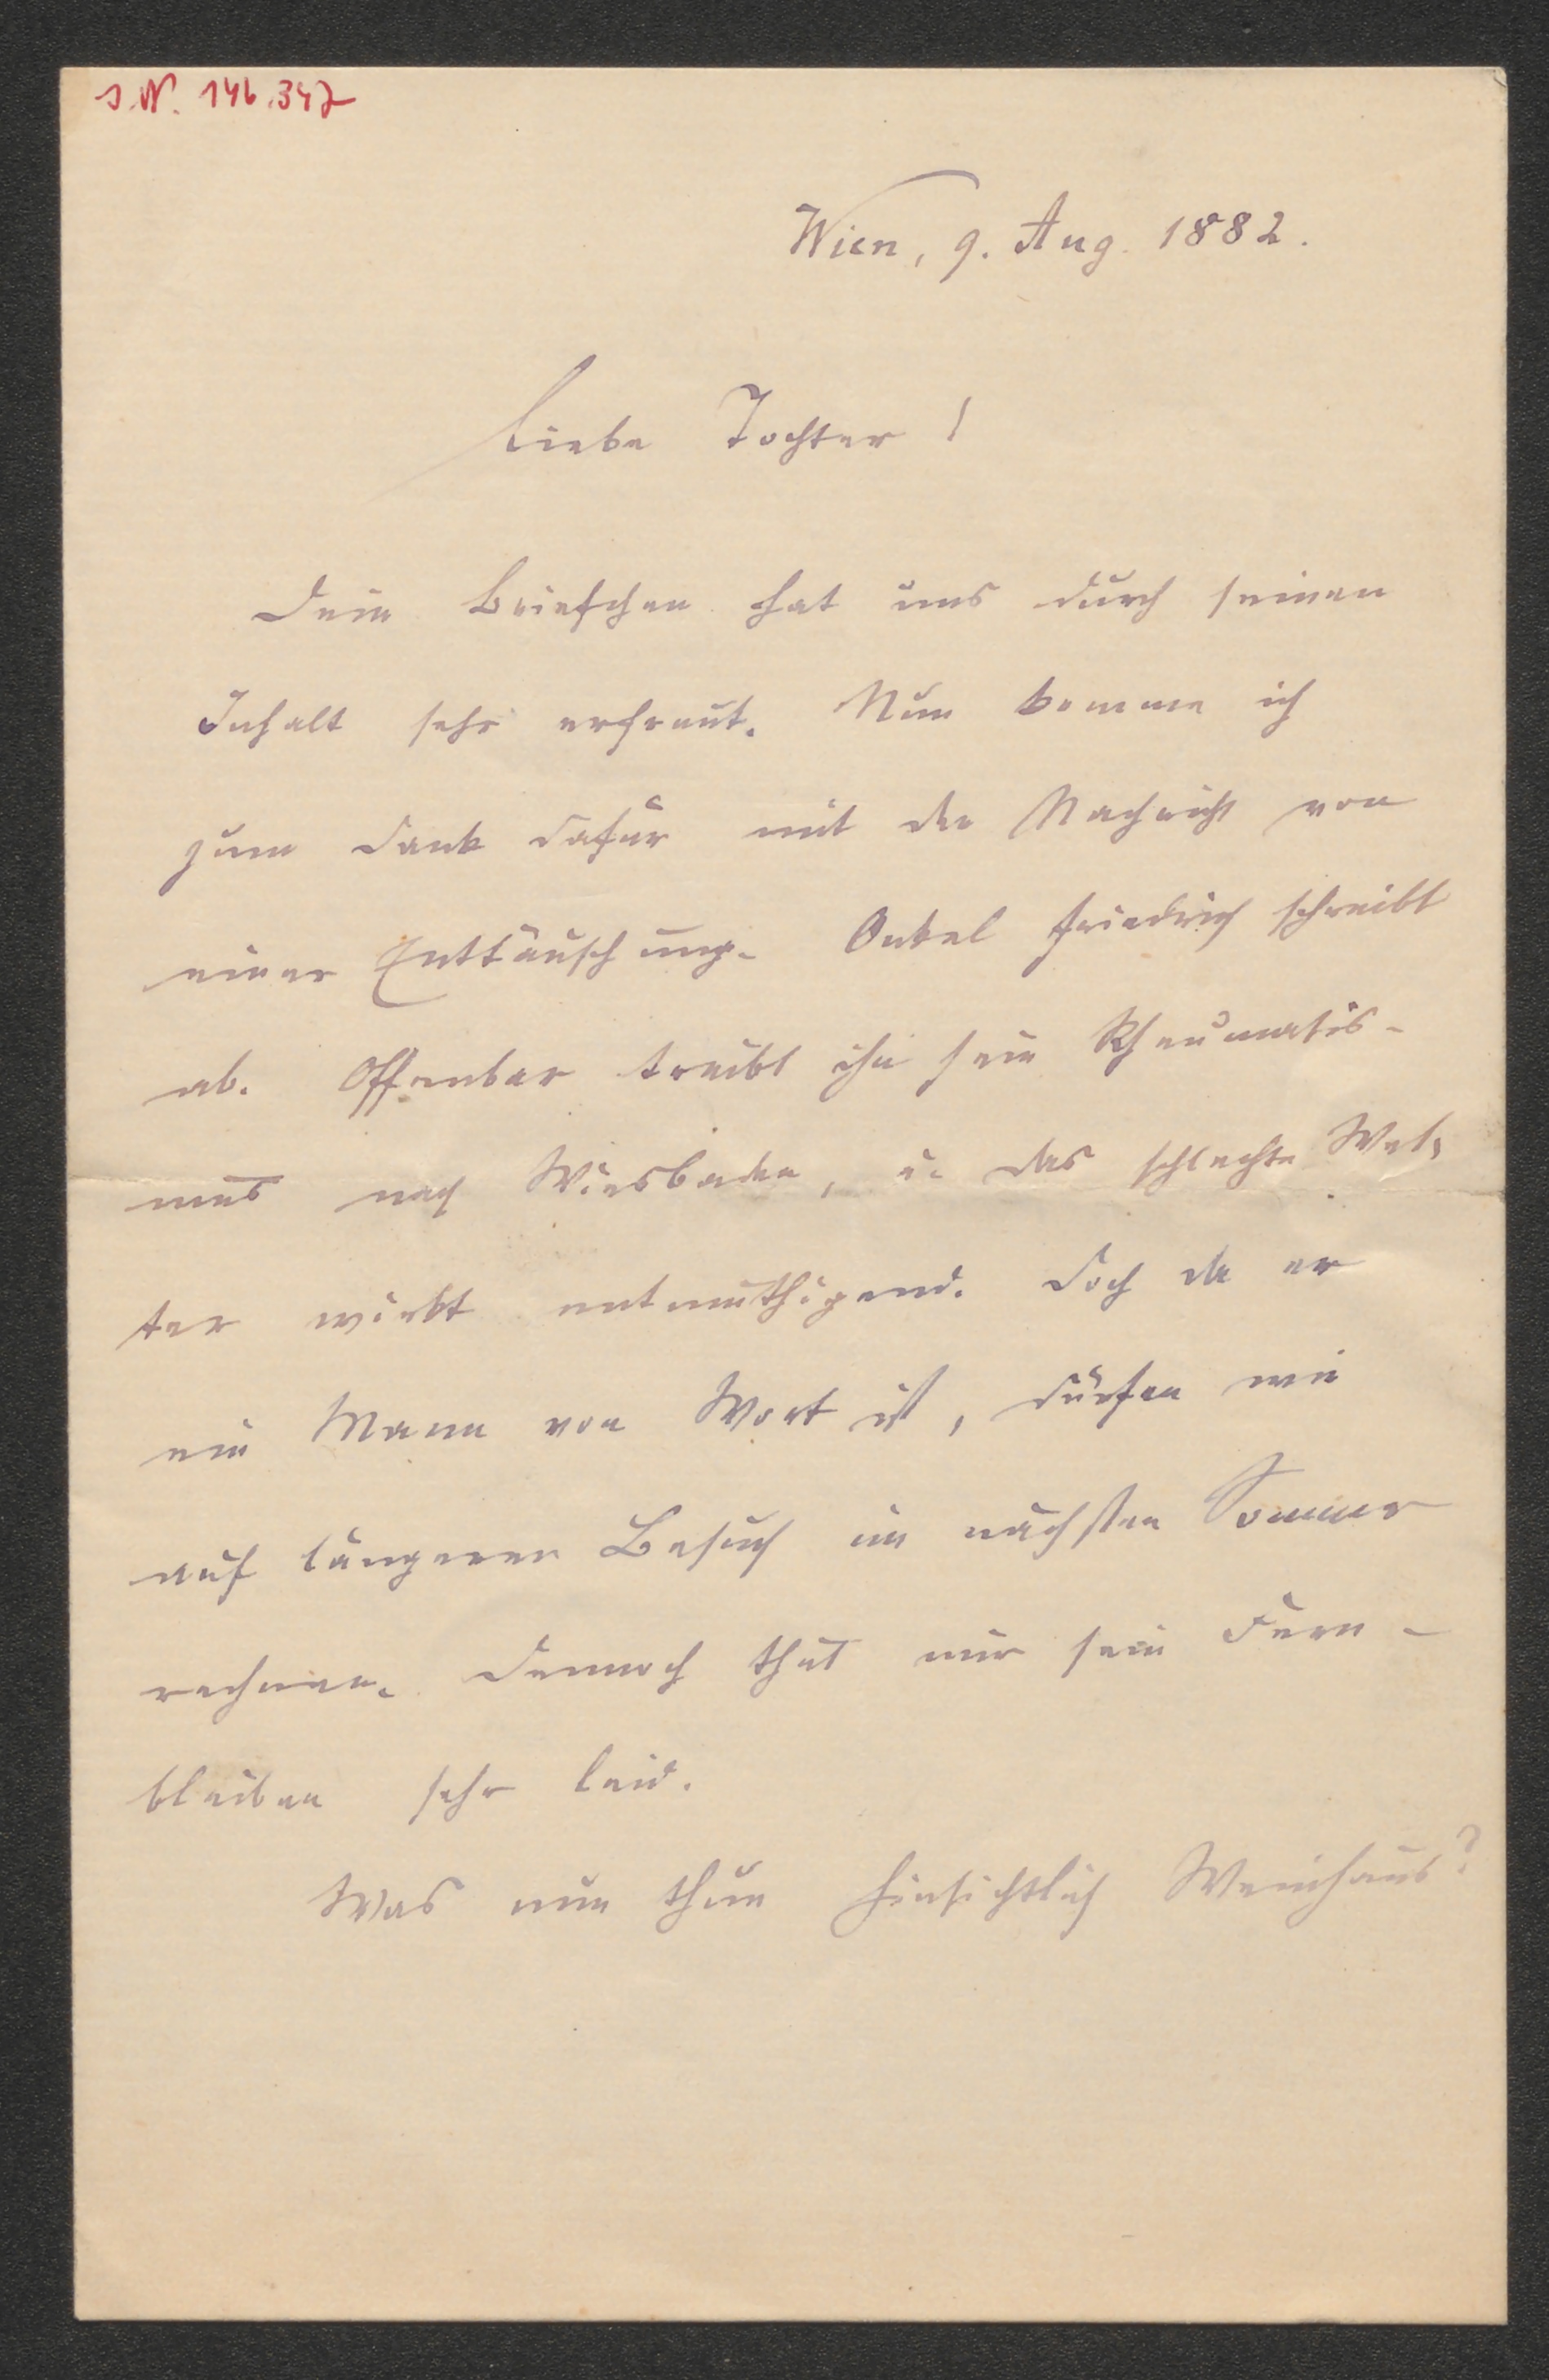 I.N. 146.347
Wien, 9. Aug. 1882.
Liebe Tochter!
Dein Briefchen hat uns durch seinen
Inhalt sehr erfreut. Nun komme ich
zum Dank dafür mit der Nachricht von
einer Enttäuschung. Onkel Friedrich schreibt
ab. Offenbar treibt ihn sein Rheumatis-
mus nach Wiesbaden, u. das schlechte Wet-
ter wirkt entmuthigend. Doch da er
ein Mann von Wort ist, dürfen wir
auf längeren Besuch im nächsten Sommer
rechnen. Dennoch thut mir sein Fern-
bleiben sehr leid.
Was nun thun hinsichtlich Weinhaus?